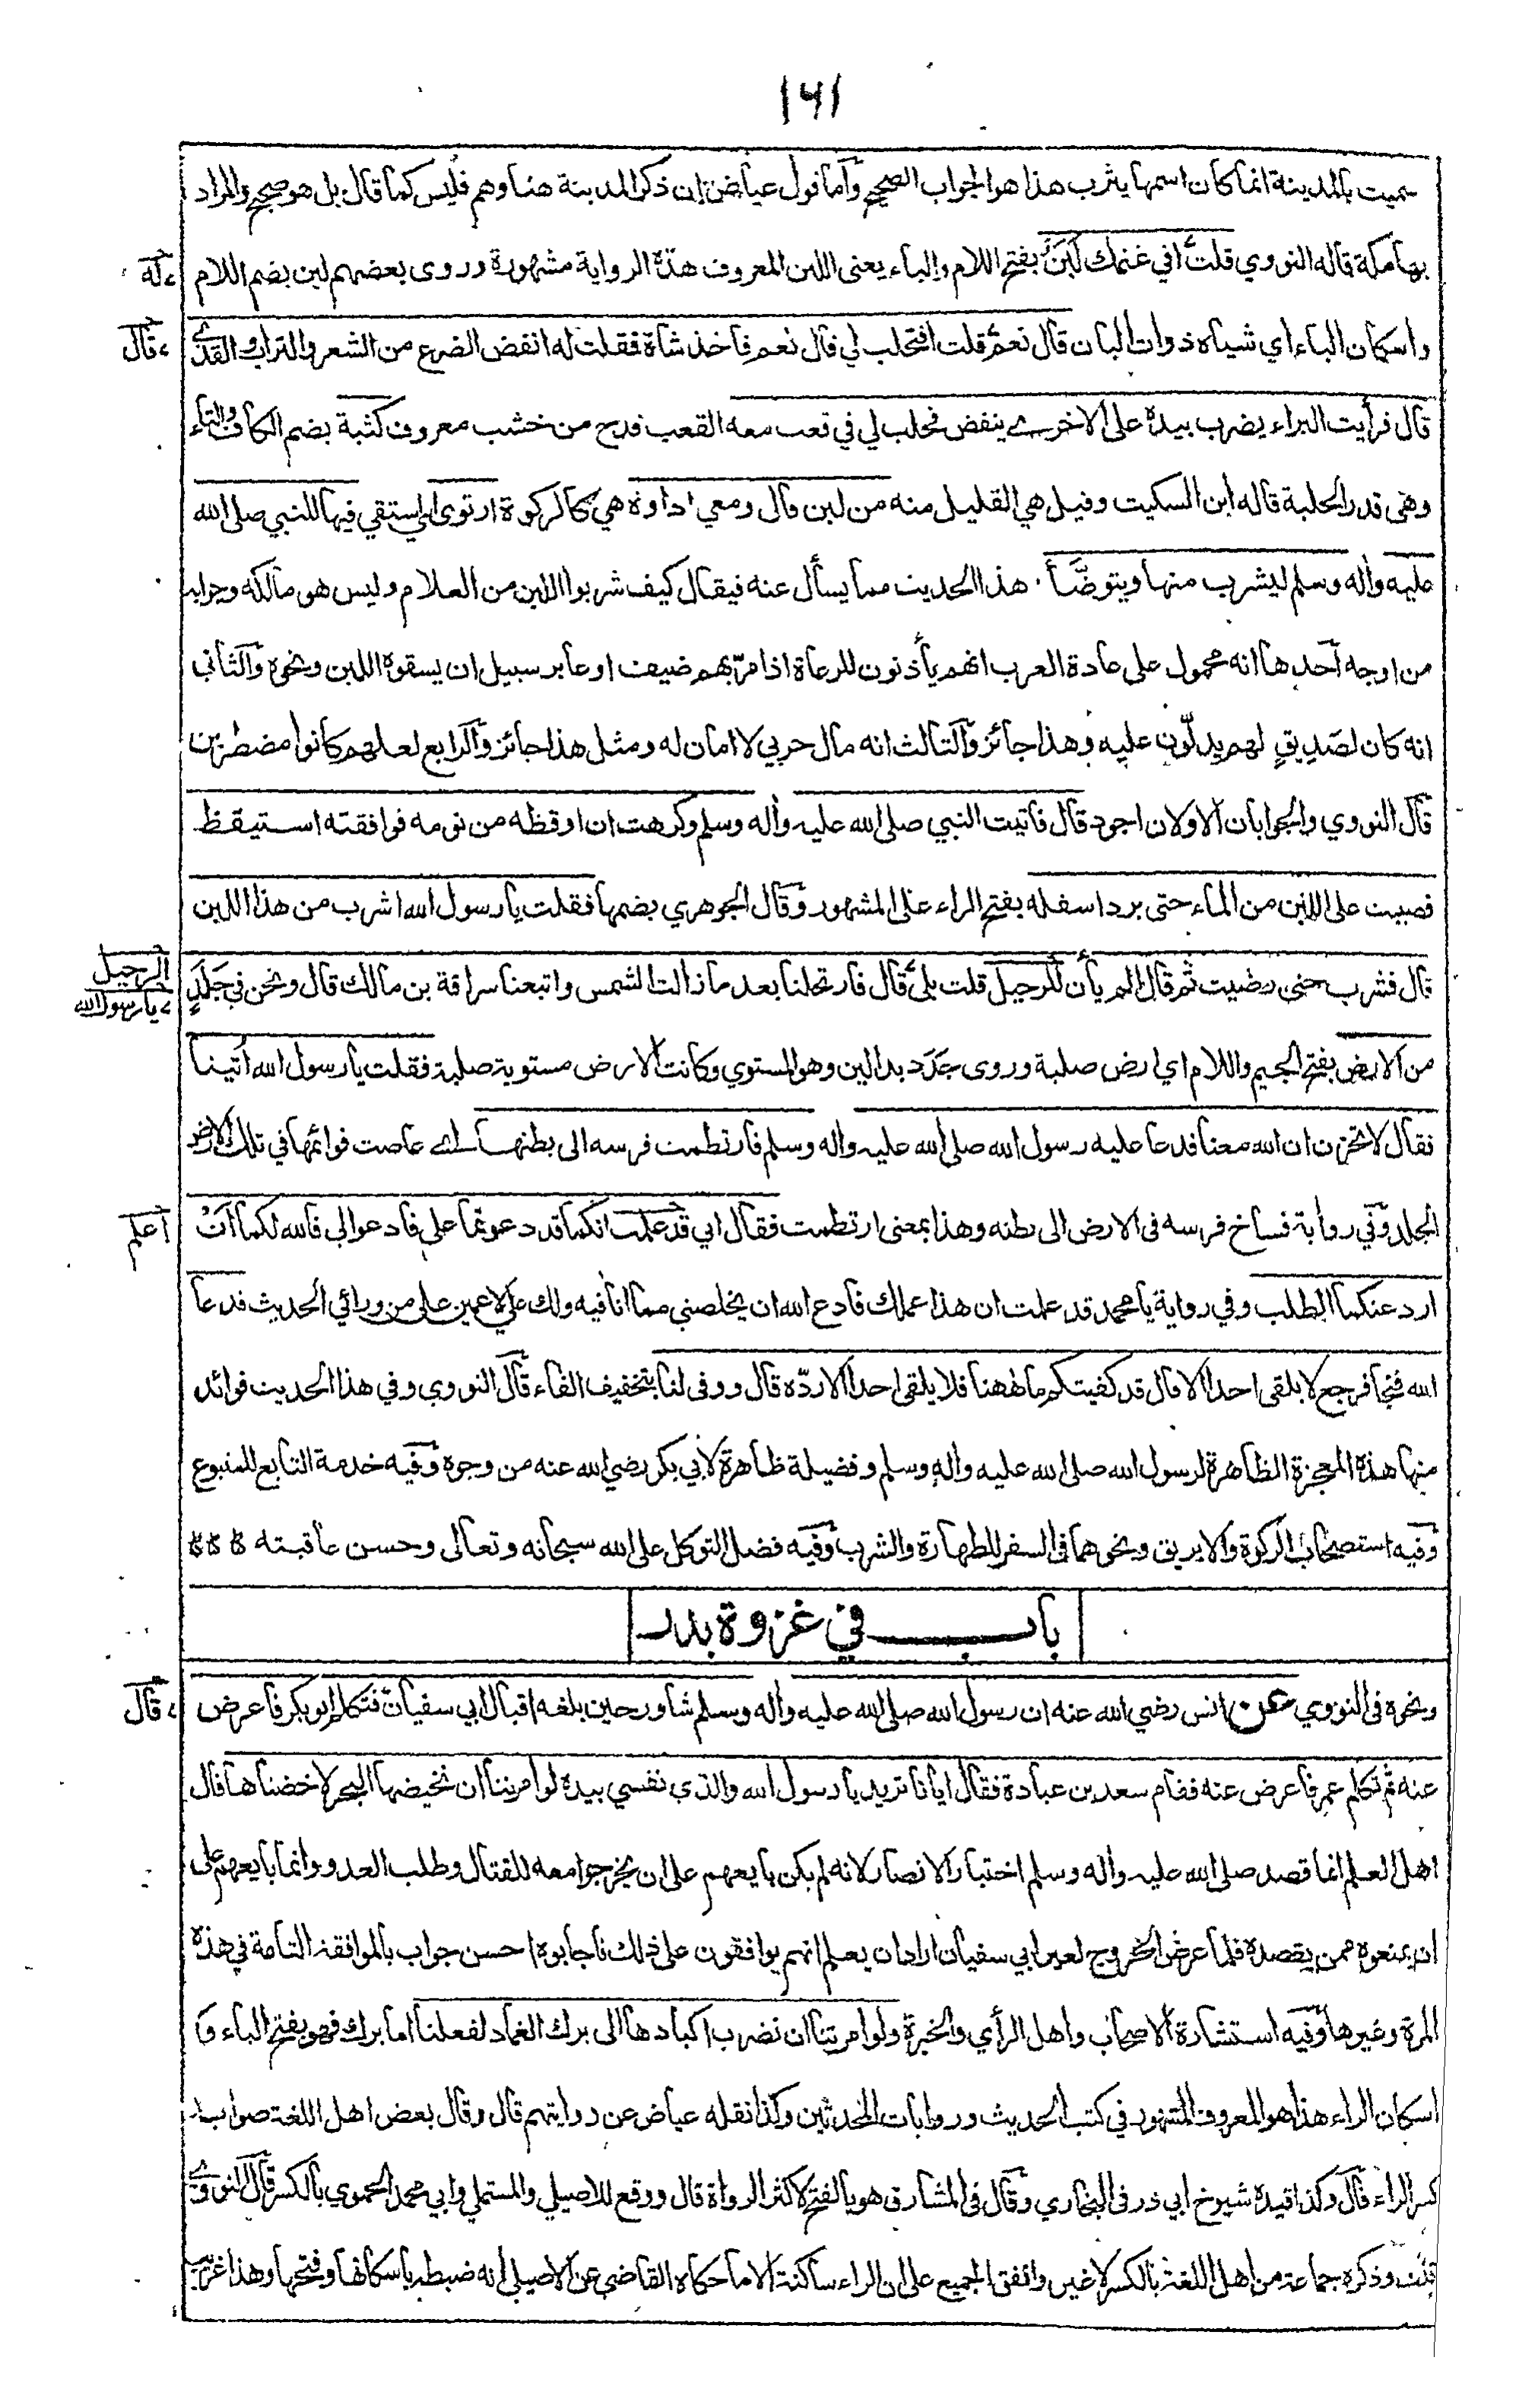 ١٦١
سميت بالمدينة انما كان اسمها يثرب هذا هو الجواب الصحيح وأما قول عياض ان ذكر المدينة هنا وهم فليس كما قال بل هو صحيح والمراد
بها مكة قاله النووي قلت أفي غنمك لَبَنٌ بفتح اللام والباء يعنى اللبن المعروف هذه الرواية مشهورة وروى بعضهم لبن بضم اللام
له
واسكان الباء اي شياه ذوات البان قال نعم قلت افتحلب لي قال نعم فاخذ شاة فقلت له انفض الضرع من الشعر والتراب والقذى
قال
قال فرأيت البراء يضرب بيده على الاخرى ينفض فحلب لي في قعب معه القعب قدح من خشب معروف كثبة بضم الكاف والثاء
وهى قدر الحلبة قاله ابن السكيت وقيل هي القليل منه من لبن قال ومعي اداوة هي كالركوة ارتوى اي استقي فيها للنبي صلى الله
عليه وأله وسلم ليشرب منها ويتوضّأ. هذا الحديث مما يسأل عنه فيقال كيف شربوا اللبن من الغلام وليس هو مالكه وجوابه
من اوجه أحدها انه محمول على عادة العرب انهم يأذنون للرعاة اذا مرّ بهم ضيف او عابر سبيل ان يسقوه اللبن ونحوه والثاني
انه كان لصَدِيقٍ لهم يدلّون عليه وهذا جائز والثالث انه مال حربي لا امان له ومثل هذا جائز والرابع لعلهم كانوا مضطرين
قال النووي والجوابان الاولان اجود قال فاتيت النبي صلى الله عليه وأله وسلم وكرهت ان اوقظه من نومه فوافقته استيقظ
فصببت على اللبن من الماء حتى برد اسفله بفتح الراء على المشهور وقال الجوهري بضمها فقلت يا رسول الله اشرب من هذا اللبن
قال فشرب حتى رضيت ثم قال الم يأن للرحيل قلت بلى قال فارتحلنا بعد ما زالت الشمس واتبعنا سراقة بن مالك قال ونحن في جَلَدٍ
الرحيل
يا رسول الله
من الارض بفتح الجيم واللام اي ارض صلبة وروى جَدَد بدالين وهو المستوي وكانت الارض مستوية صلبة فقلت يا رسول الله أتينا
فقال لا تحزن ان الله معنا فدعا عليه رسول الله صلى الله عليه واله وسلم فارتطمت فرسه الى بطنها اى غاصت قوائمها في تلك الارض
الجلد وفي رواية فساخ فرسه فى الارض الى بطنه وهذا بمعنى ارتطمت فقال اني قد علمت انكما قد دعوتما علي فادعوا لي فالله لكما أنْ
اعلم
ارد عنكما الطلب وفي رواية يا محمد قد علمت ان هذا عملك فادع الله ان يخلصني مما انا فيه ولك علي لاعمين على من ورائي الحديث فدعا
الله فنجا فرجع لا يلقى احدا الا قال قد كفيتكم ما ههنا فلا يلقى احدا الا ردّه قال ووفى لنا بتخفيف الفاء قال النووي وفي هذا الحديث فوائد
منها هذه المعجزة الظاهرة لرسول الله صلى الله عليه واله وسلم وفضيلة ظاهرة لأبي بكر رضي الله عنه من وجوه وفيه خدمة التابع للمتبوع
وفيه استصحاب الركوة والابريق ونحوهما في السفر للطهارة والشرب وفيه فضل التوكل على الله سبحانه وتعالى وحسن عاقبته
باب في غزوة بدر
ونحوه فى النووي عن انس رضي الله عنه ان رسول الله صلى الله عليه وأله وسلم شاور حين بلغه اقبال ابي سفيان فتكلم ابو بكر فاعرض
قال
عنه ثم تكلم عمر فاعرض عنه فقام سعد بن عبادة فقال ايانا تريد يا رسول الله والذي نفسي بيده لو امرتنا ان نخيضها البحر لاخضناها قال
اهل العلم انما قصد صلى الله عليه وأله وسلم اختبار الانصار لانه لم يكن بايعهم على ان يخرجوا معه للقتال وطلب العدو وانما بايعهم على
ان يمنعوه ممن يقصده فلما عرض الخروج لعير ابي سفيان اراد ان يعلم انهم يوافقون على ذلك فاجابوه احسن جواب بالموافقة التامة في هذه
المرة وغيرها وفيه استشارة الاصحاب واهل الرأي والخبرة ولو امرتنا ان نضرب اكبادها الى برك الغماد لفعلنا اما برك فهو بفتح الباء و
اسكان الراء هذا هو المعروف المشهور في كتب الحديث وروايات المحدثين وكذا نقله عياض عن روايتهم قال وقال بعض اهل اللغة صوابه
كسر الراء قال وكذا قيده شيوخ ابي ذر فى البخاري وقال فى المشارق هو بالفتح لاكثر الرواة قال ووقع للاصيلي والمستملي وابي محمد الحموي بالكسر قال النووي
قلت وذكره جماعة من اهل اللغة بالكسر لا غير واتفق الجميع على ان الراء ساكنة الا ما حكاه القاضي عن الاصيلي انه ضبطه باسكانها وفتحها وهذا غريب